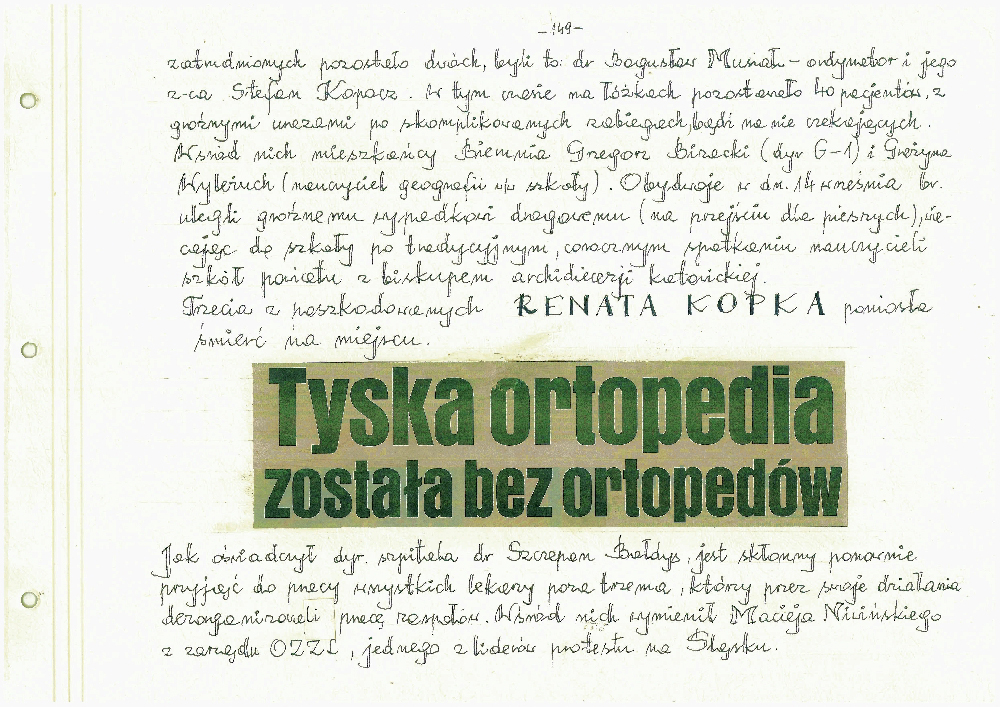 – 149 –
zatrudnionych pozostało dwóch, byli to: dr Bogusław Musiał – ordynator i jego
z-ca Stefan Kopocz. W tym czasie na łóżkach pozostawało 40 pacjentów, z
groźnymi urazami po skomplikowanych zabiegach, bądź na nie czekających.
Wśród nich mieszkańcy Bierunia Grzegorz Bizacki (dyr G-1) i Grażyna
Wyleżuch (nauczyciel geografii w/w szkoły). Obydwoje w dn. 14 września br.
ulegli groźnemu wypadkowi drogowemu (na przejściu dla pieszych), wra-
cając do szkoły po tradycyjnym, corocznym spotkaniu nauczycieli
szkół powiatu z biskupem archidiecezji katowickiej.
Trzecia z poszkodowanych RENATA KOPKA poniosła
śmierć na miejscu.
Tyska ortopedia
została bez ortopedów
Jak oświadczył dyr. szpitala dr Szczepan Bołdys, jest skłonny ponownie
przyjąć do pracy wszystkich lekarzy poza trzema, którzy przez swoje działania
dezorganizowali pracę zespołów. Wśród nich wymienił Macieja Niwińskiego
z zarządu OZZL, jednego z liderów protestu na Śląsku.